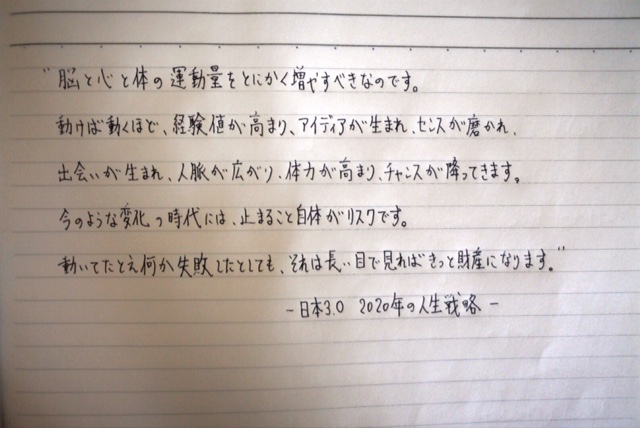 "脳と心と体の運動量をとにかく増やすべきなのです。
動けば動くほど、経験値が高まり、アイディアが生まれ、センスが磨かれ、
出会いが生まれ、人脈が広がり、体力が高まり、チャンスが降ってきます。
今のような変化の時代には、止まること自体がリスクです。
動いてたとえ何か失敗したとしても、それは長い目で見ればきっと財産になります。"
- 日本3.0 2020年の人生戦略 -